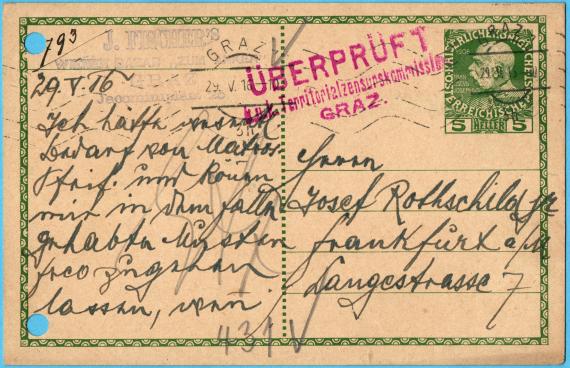 793
J. FISCHER'S
WIENER BAZAR ZUM
GRAZ
29. V. 16
ÜBERPRÜFT
k.u.k. Territorialzensurkommission
GRAZ.
KAISERLICHE KÖNIGLICHE
ÖSTERREICHISCHE POST
5 HELLER 5
29 V. 16
Ich hatte
Bedarf von Matros
Pfeif. und können
mir in dem Falle
gehabten Mustern
freo zugehen
lassen, wenn
Herrn
Josef Rothschild jr
Frankfurt a/M
Langestrasse 7
431 V